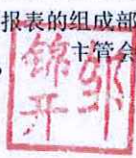 报表的组成部
主管会
邹
锦开